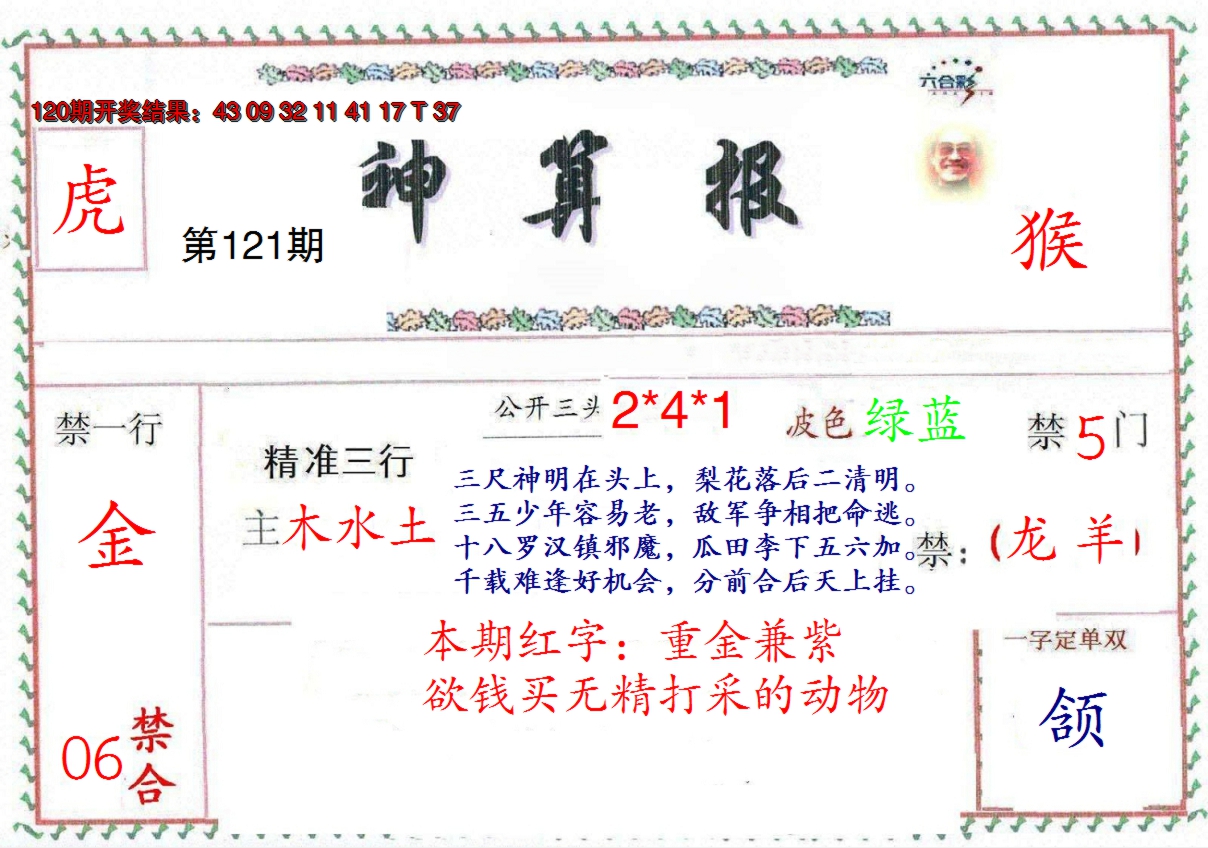 六合彩
120期开奖结果：43 09 32 11 41 17 T 37
虎
神算报
第121期
猴
禁一行
金
06
禁合
精准三行
主木水土
公开三头 2*4*1
波色 绿蓝
禁5门
三尺神明在头上，梨花落后二清明。
三五少年容易老，敌军争相把命逃。
十八罗汉镇邪魔，瓜田李下五六加。
千载难逢好机会，分前合后天上挂。
禁：（龙 羊）
本期红字：重金兼紫
欲钱买无精打采的动物
一字定单双
颌